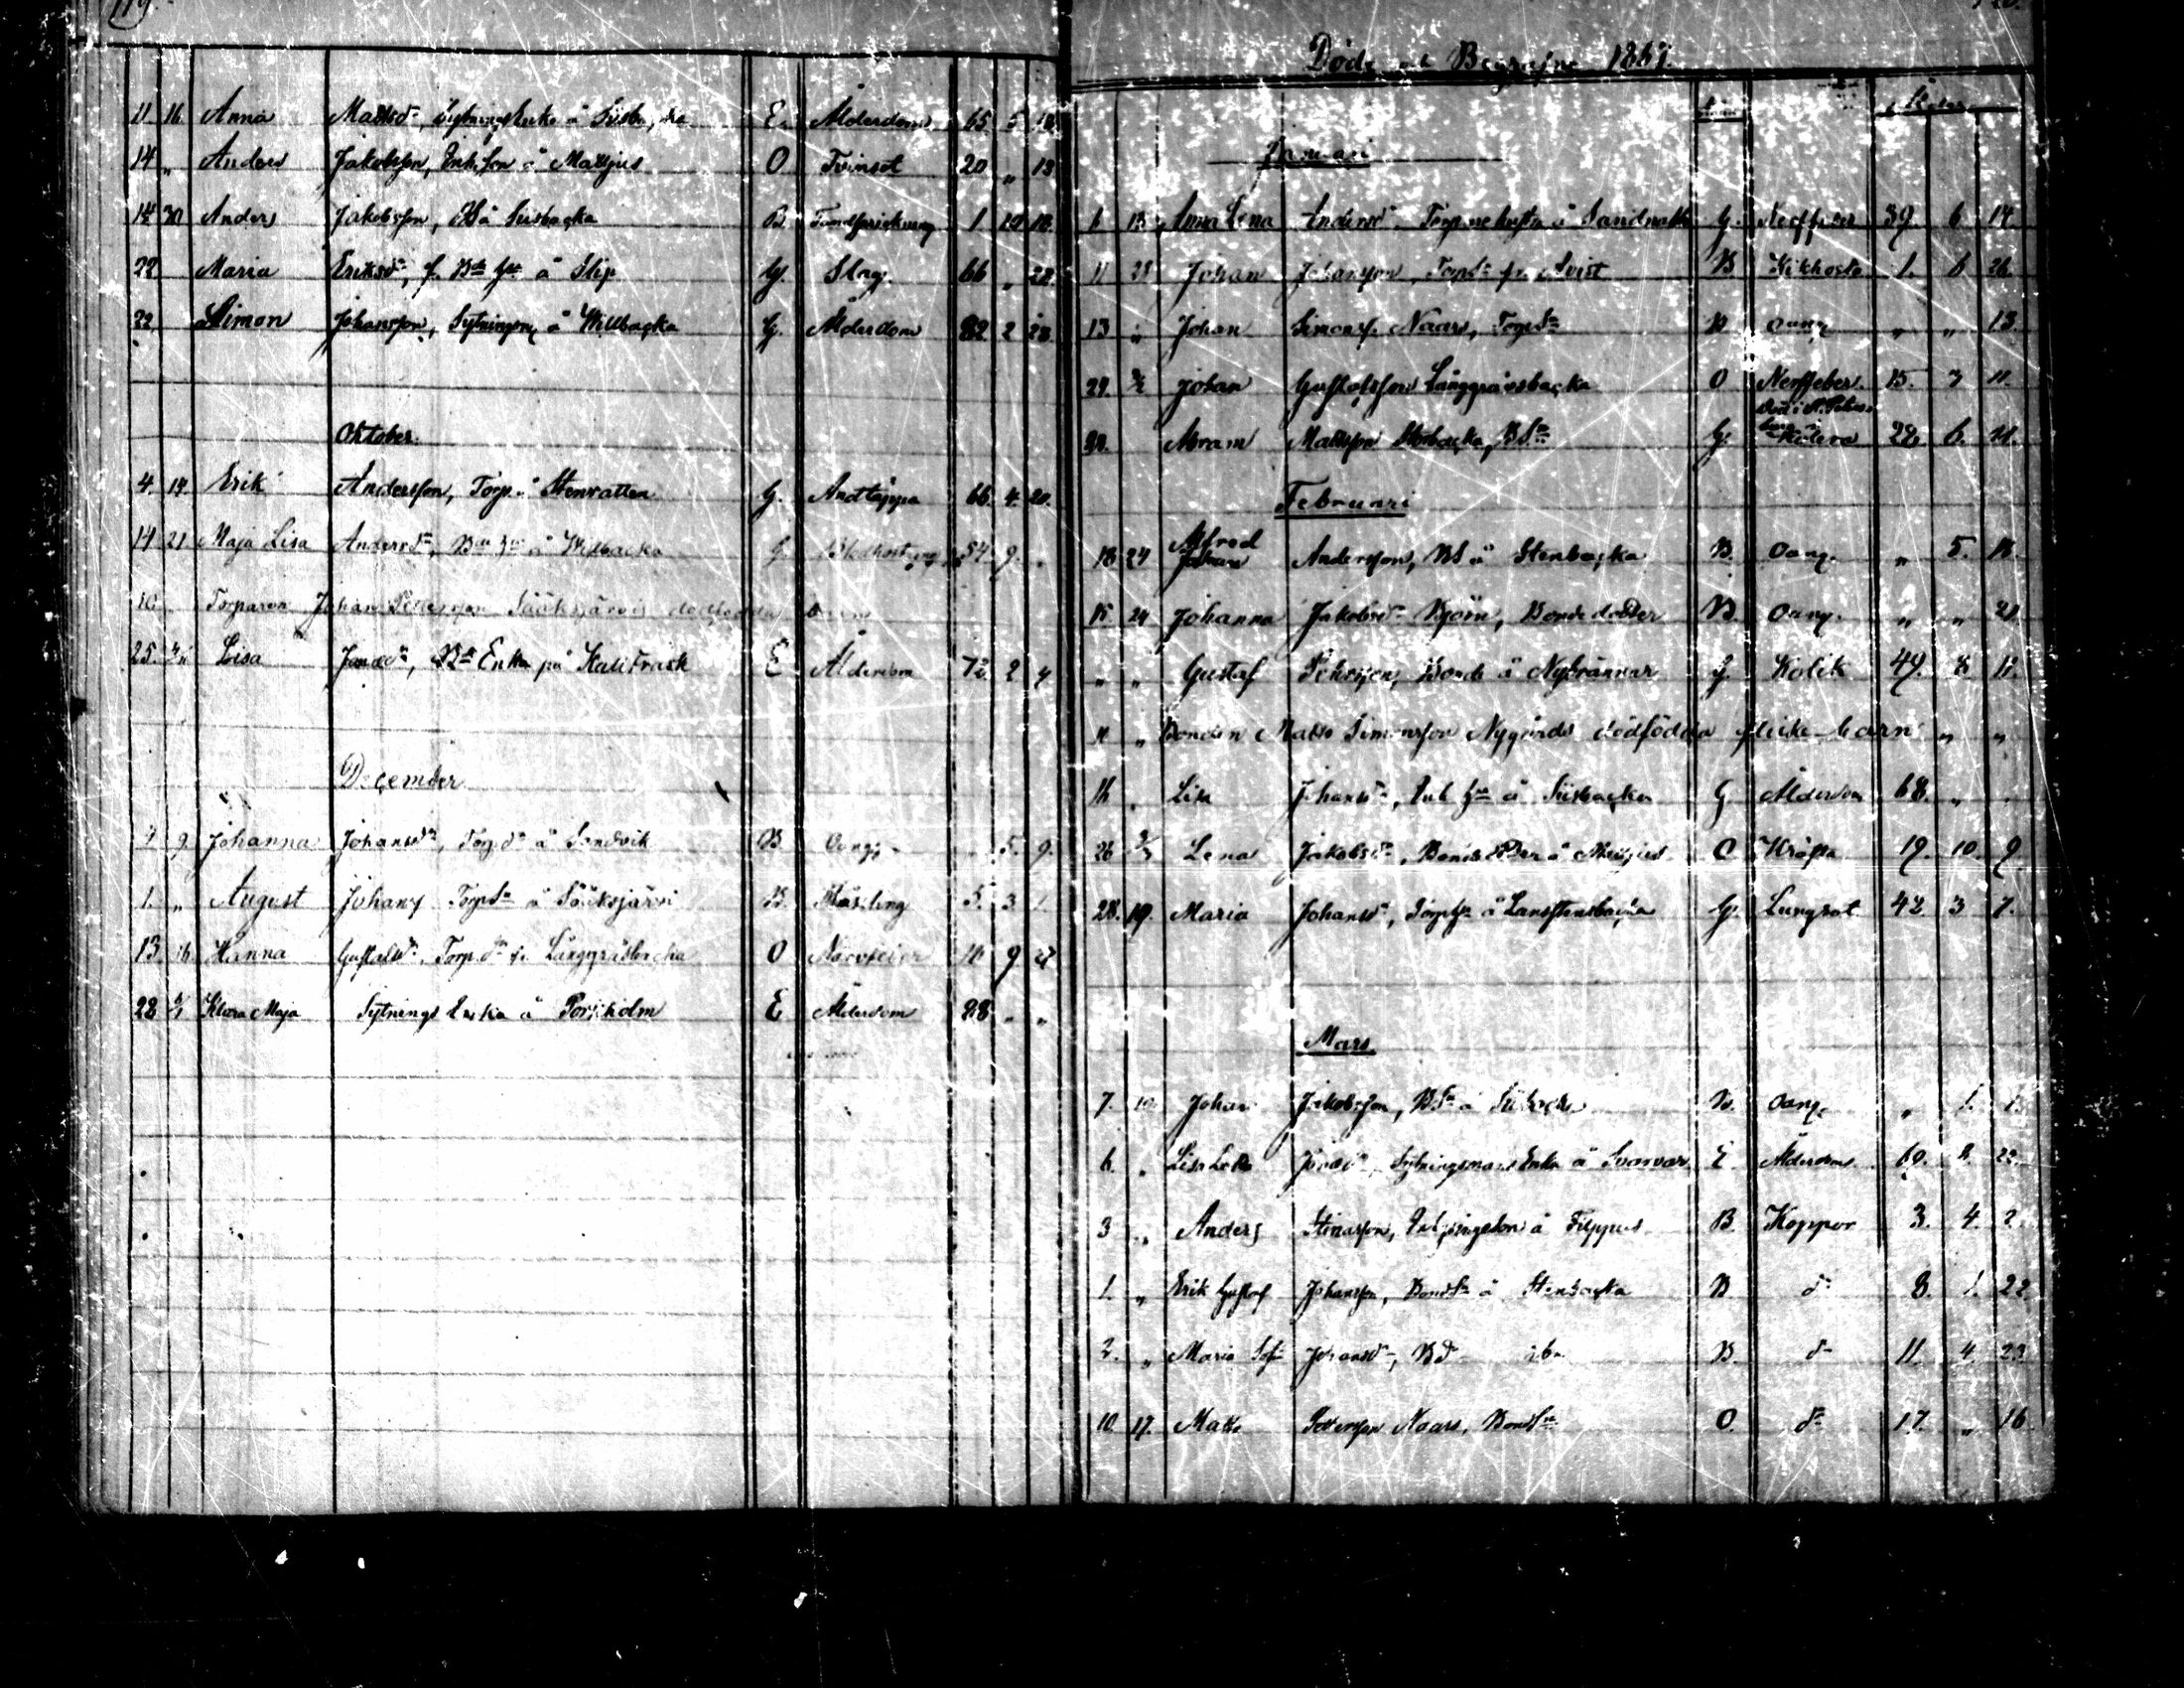 119.
11 16 Anna Mattsdr, Sytningsenka å E. Ålderdom 65 5 18
14 „ Anders Jakobsson, Enk.son å Mattjus O Tvinsot 20 „ 13
14 30 Anders Jakobsson, BS å Siisbacka B. Tandsprickning 1 10 18
22 Maria Eriksdr, f. Bde Hu å Slip G. Slag. 66 „ 22.
22 Simon Johansson, Sytning å Willbacka G. Ålderdom 82 2 28
Oktober.
4. 14 Erik Andersson, Torp. å Stenvatten G. Andtäppa 66. 4. 20.
14 21 Maja Lisa Andersdr, å G 54. 9. „
10 Torparen Johan Pettersson Sääksjärvis dödfödda barn
25. Lisa Jonaedr, Enka på Kalifrask E Ålderdom 72. 2 4
December
9. Johanna Johansdr, Torp.dr å Sandvik B Oang. „ 5. 9.
1. „ August Johans Torp.Sn å Sääksjärvi B. Mässling 5. 3 1.
13 16 Hanna Gustafsdr, Torp.dr fr. Långgräsbacka O Nervfeber 16 9 27
28 Klara Maja Sytnings Enka å Porsholm E Ålderdom 88 „ „
Döde och Begrafne 1867.
Januari
6 13 Anna Lena Andersdr. Torparehustru å Sandnabb G. Nerffeber 39. 6 14.
11 28 Johan Johansson, Torp.Sn fr. Kvist B Kikhosta 1. 6 26
13 „ Johan Simons. Naars, Torp.Sn B Oang „ „ 13.
29. 3/2 Johan Gustafsson Långgräsbacka O Nerffeber. 15. 3 11.
Död i St. Peters-
Abram Mattsson Storbacka, BSn G. Kolera 28. 6. 11.
Februari
Alfred
18 24 Johan Andersson, BS å Stenbacka B. Oang. „ 5. 18.
15 24 Johanna Jakobsdr Björn, Bondedotter B. Oang. „ „ 21
„ „ Gustaf Pehrsson, Bonde å Nybrännar G. Kolik 49. 8 12.
11 „ Bonden Matts Simonsson Nygårds dödfödda flicke-barn „ „
16 „ Lisa Johansdr, Inh. Hu å Siisbacka G Ålderdom 68. „
26 3/3 Lena Jakobsdr, Bondedotter å Mattjus O Kräfta 19. 10. 9
28. 19. Maria Johansdr, TorpHu å G. Lungsot 42 3 7.
Mars
7. 10 Johan Jakobsson, BSn å Siisbacka B. Oang. „ 1. 1.
6. „ Lisa Lotta Jonaedr, Sytningsmans Enka å Svarvar E. Ålderdom. 69. 8. 22.
3 „ Anders Stinasson, Inhysingeson å Filppus B. Koppor 3. 4. 2.
1. „ Erik Gustaf Johansson, BondSn å Stenbacka B do 8. 1. 22
2. „ Maria Sofia Johansdr, Bdr ibm B. do 11. 4. 23.
10. 17. Matts Pettersson Naars, BondSn O. do 17. „ 16